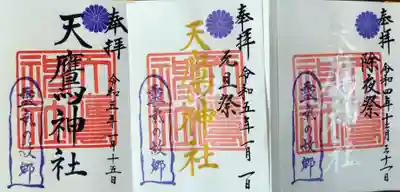 奉拝
令和五年一月十五日
天鷹神社
靈氣の故郷
奉拝
元旦祭
令和五年一月一日
天鷹神社
靈氣の故郷
奉拝
除夜祭
令和四年十二月三十一日
天鷹神社
靈氣の故郷